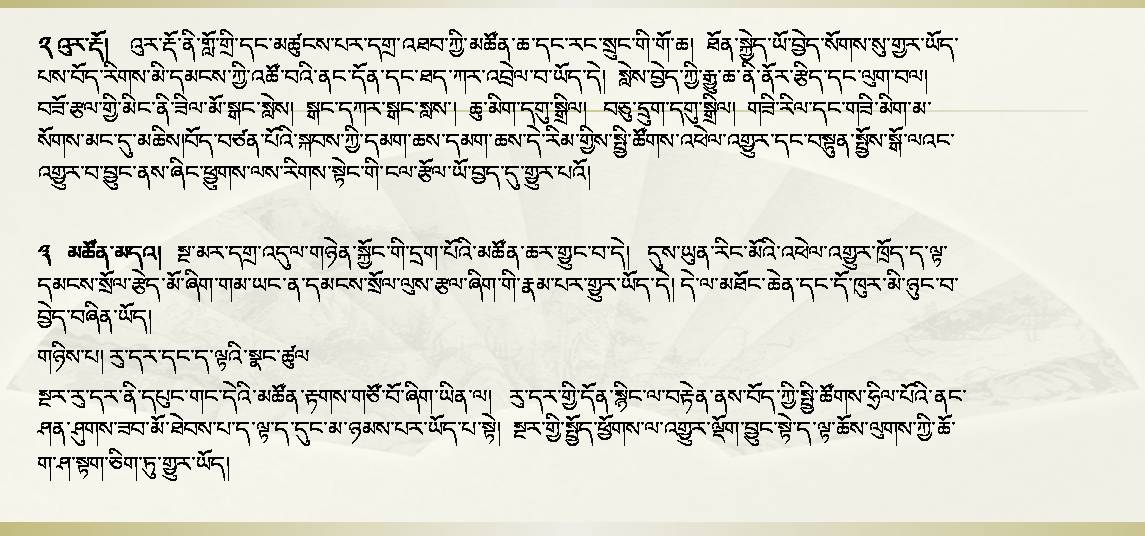 ༢ འུར་རྡོ།   འུར་རྡོ་ནི་གློ་གྲི་དང་མཚུངས་པར་དགྲ་འཐབ་ཀྱི་མཚོན་ཆ་དང་རང་སྲུང་གི་གོ་ཆ།  ཐོན་སྐྱེད་ཡོ་བྱེད་སོགས་སུ་གྱུར་ཡོད་
པས་བོད་རིགས་མི་དམངས་ཀྱི་འཚོ་བའི་ནང་དོན་དང་ཐད་ཀར་འབྲེལ་བ་ཡོད་དེ།  སླེས་བྱེད་ཀྱི་རྒྱུ་ཆ་ནི་ནོར་རྩིད་དང་ལུག་བལ།
བཟོ་རྩལ་གྱི་མིང་ནི་ཟིལ་མོ་སྒང་སླེས།  སྒང་དཀར་སྒང་སླས་།  ཆུ་མིག་དགུ་སྒྲིལ།  བཅུ་དྲུག་དགུ་སྒྲིལ།  གཟི་རིལ་དང་གཟི་མིག་མ་
སོགས་མང་དུ་མཆིས།བོད་བཙན་པོའི་སྐབས་ཀྱི་དམག་ཆས་དམག་ཆས་དེ་རིམ་གྱིས་སྤྱི་ཚོགས་འཕེལ་འགྱུར་དང་བསྟུན་སྤྱོས་སྒོ་ལའང་
འགྱུར་བ་བྱུང་ནས་ཞིང་ཕྱུགས་ལས་རིགས་སྟེང་གི་ངལ་རྩོལ་ཡོ་བྱད་དུ་གྱུར་པའོ།
༣  མཚོན་མདའ།  སྔ་མར་དགྲ་འདུལ་གཉེན་སྐྱོང་གི་དྲག་པོའི་མཚོན་ཆར་གྱུང་བ་དེ།  དུས་ཡུན་རིང་མོའི་འཕེལ་འགྱུར་ཁྲོད་ད་ལྟ་
དམངས་སྲོལ་རྩེད་མོ་ཞིག་གམ་ཡང་ན་དམངས་སྲོལ་ལུས་རྩལ་ཞིག་གི་རྣམ་པར་གྱུར་ཡོད་དེ། དེ་ལ་མཐོང་ཆེན་དང་དོ་ཁུར་མི་ཉུང་བ་
བྱེད་བཞིན་ཡོད།
གཉིས་པ། རུ་དར་དང་ད་ལྟའི་སྣང་ཚུལ
སྔར་རུ་དར་ནི་དཔུང་གང་དེའི་མཚོན་རྟགས་གཙོ་བོ་ཞིག་ཡིན་ལ།  རུ་དར་གྱི་དོན་སྙིང་ལ་བརྟེན་ནས་བོད་ཀྱི་སྤྱི་ཚོགས་ཧྲིལ་པོའི་ནང་
ཤན་ཤུགས་ཟབ་མོ་ཐེབས་པ་ད་ལྟ་ད་དུང་མ་ཉམས་པར་ཡོད་པ་སྟེ།  སྔར་གྱི་སྤྱོད་ཕྱོགས་ལ་འགྱུར་ལྡོག་བྱུང་སྟེ་ད་ལྟ་ཆོས་ལུགས་ཀྱི་ཆོ་
ག་ཤ་སྟག་ཅིག་ཏུ་གྱུར་ཡོད།